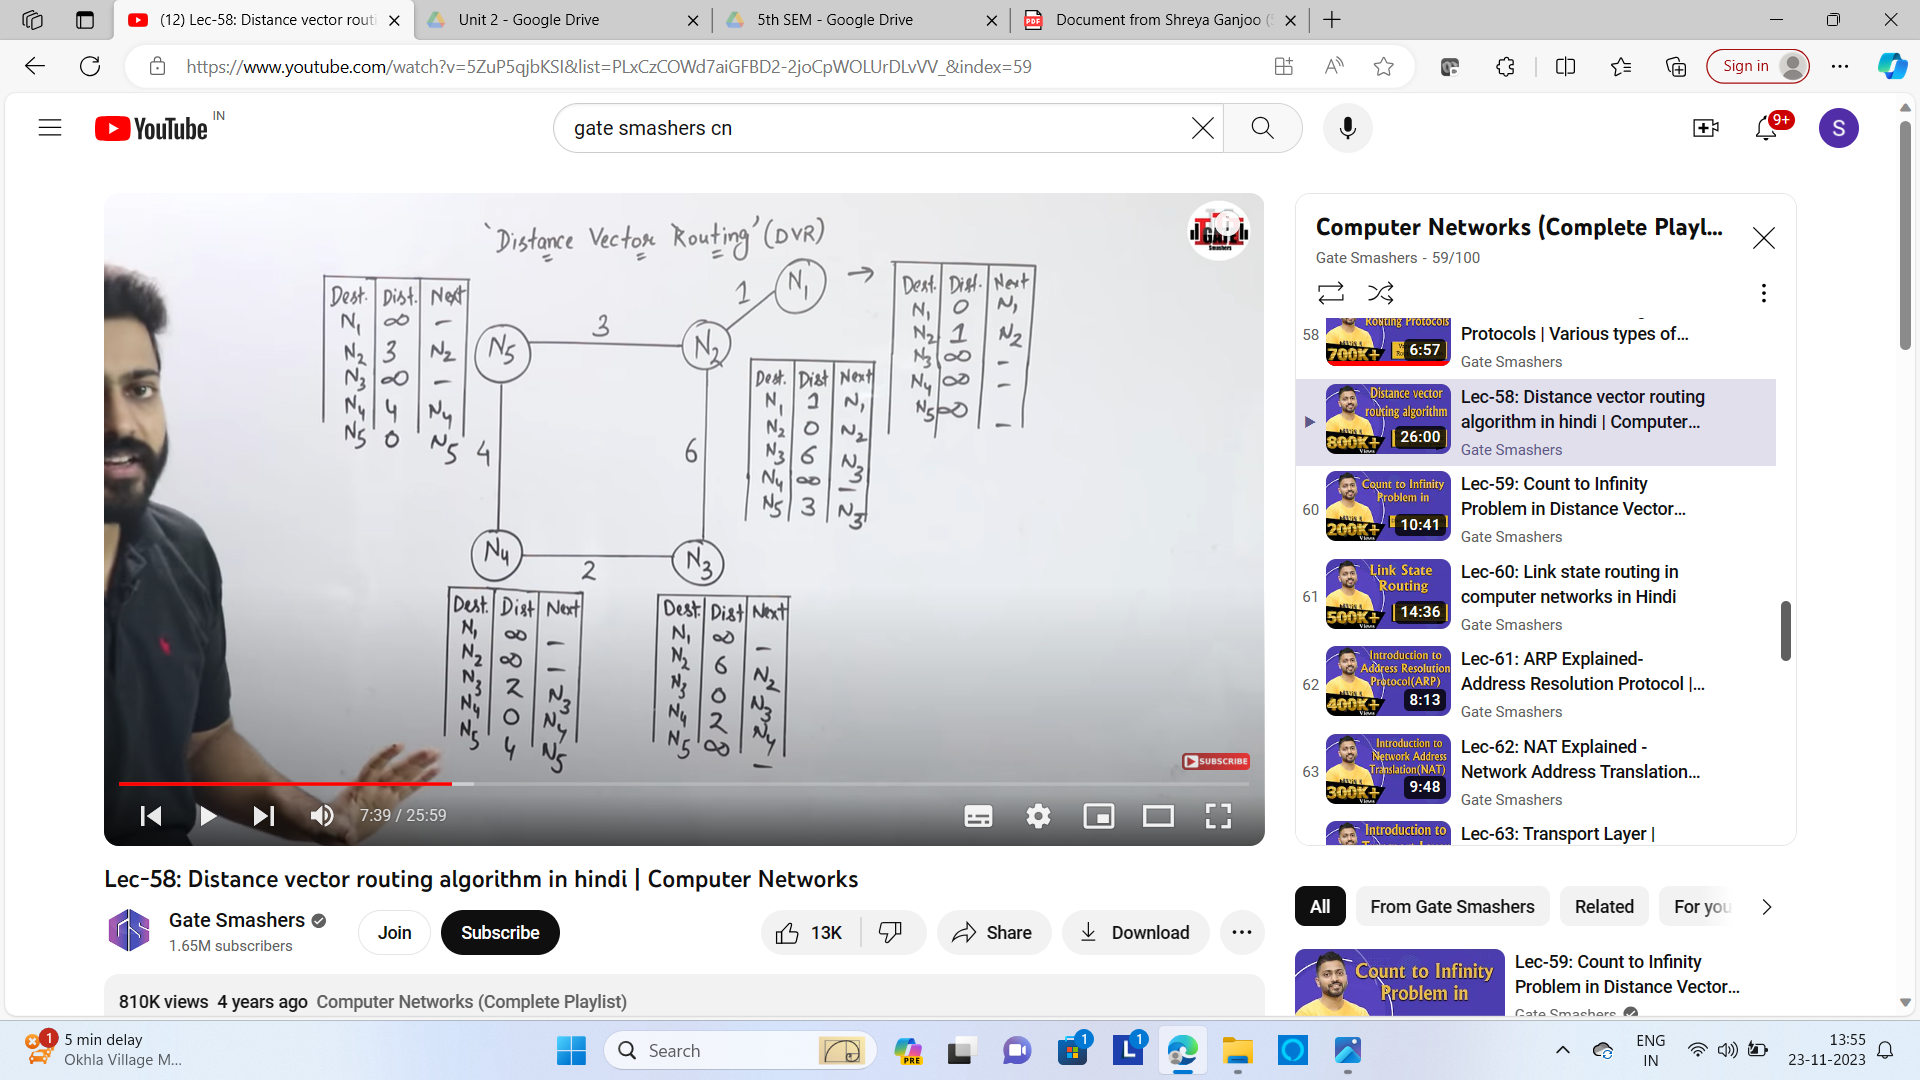 (12) Lec-58: Distance vector routi
Unit 2 - Google Drive
5th SEM - Google Drive
Document from Shreya Ganjoo (
https://www.youtube.com/watch?v=5ZuP5qjbKSI&list=PLxCzCOWd7aiGFBD2-2joCpWOLUrDLvVV_&index=59
Sign in
YouTube IN
gate smashers cn
9+
S
'Distance Vector Routing' (DVR)
Dest. Dist. Next
N1 ∞ –
N2 3 N2
N3 ∞ –
N4 4 N4
N5 0 N5
N5
3
N2
1
N1
→
4
6
N4
2
N3
Dest. Dist. Next
N1 0 N1
N2 1 N2
N3 ∞ –
N4 ∞ –
N5 ∞ –
Dest. Dist Next
N1 1 N1
N2 0 N2
N3 6 N3
N4 ∞ –
N5 3 N3
Dest. Dist Next
N1 ∞ –
N2 ∞ –
N3 2 N3
N4 0 N4
N5 4 N5
Dest. Dist Next
N1 ∞ –
N2 6 N2
N3 0 N3
N4 2 N4
N5 ∞ –
GATE
Smashers
SUBSCRIBE
7:39 / 25:59
Lec-58: Distance vector routing algorithm in hindi | Computer Networks
Gate Smashers
1.65M subscribers
Join
Subscribe
13K
Share
Download
810K views 4 years ago Computer Networks (Complete Playlist)
Computer Networks (Complete Playl...
Gate Smashers - 59/100
58
Routing Protocols
700K+
6:57
Protocols | Various types of...
Gate Smashers
Distance vector
routing algorithm
800K+
Views
26:00
Lec-58: Distance vector routing
algorithm in hindi | Computer...
Gate Smashers
60
Count to Infinity
Problem in
200K+
10:41
Lec-59: Count to Infinity
Problem in Distance Vector...
Gate Smashers
61
Link State
Routing
500K+
Views
14:36
Lec-60: Link state routing in
computer networks in Hindi
Gate Smashers
62
Introduction to
Address Resolution
Protocol(ARP)
400K+
8:13
Lec-61: ARP Explained-
Address Resolution Protocol |...
Gate Smashers
63
Introduction to
Network Address
Translation(NAT)
300K+
9:48
Lec-62: NAT Explained -
Network Address Translation...
Gate Smashers
Introduction to
Lec-63: Transport Layer |
All
From Gate Smashers
Related
For you
Count to Infinity
Problem in
Lec-59: Count to Infinity
Problem in Distance Vector...
Gate Smashers
1
5 min delay
Okhla Village M...
Search
PRE
1
L
1
ENG
IN
13:55
23-11-2023